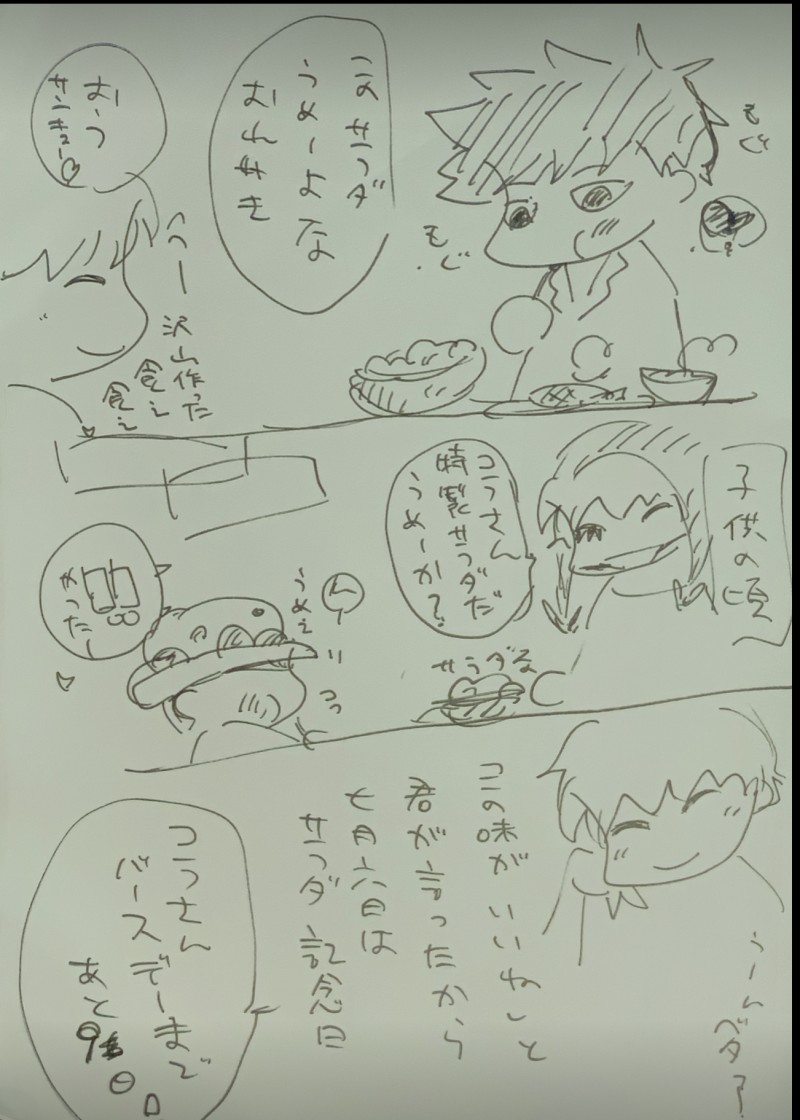 もぐ
もぐ
このサラダ
うめーよな
おれ好き
おうっ
サンキュー♡
へへー
沢山作った
食え
食え
子供の頃
コラさん
特製サラダだ
うめーか?
サラダる
うめぇ
よかったー
この味がいいねと
君が言ったから
七月六日は
サラダ記念日
うーんベタ?
コラさん
バースデーまで
あと9
日